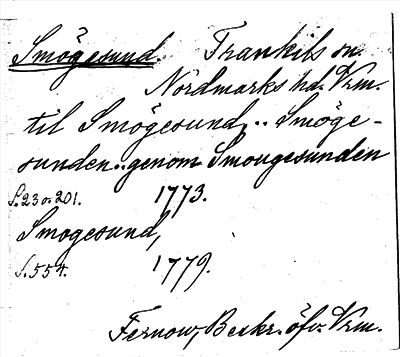 Smögesund. Trankils sn.
Nordmarks hd. Vrm.
til Smögesund.. Smöge-
sunden.. genom Smougesunden
S. 23 o. 201. 1773.
Smogesund,
S. 554. 1779.
Fernow, Beskr. öfv. Vrm.